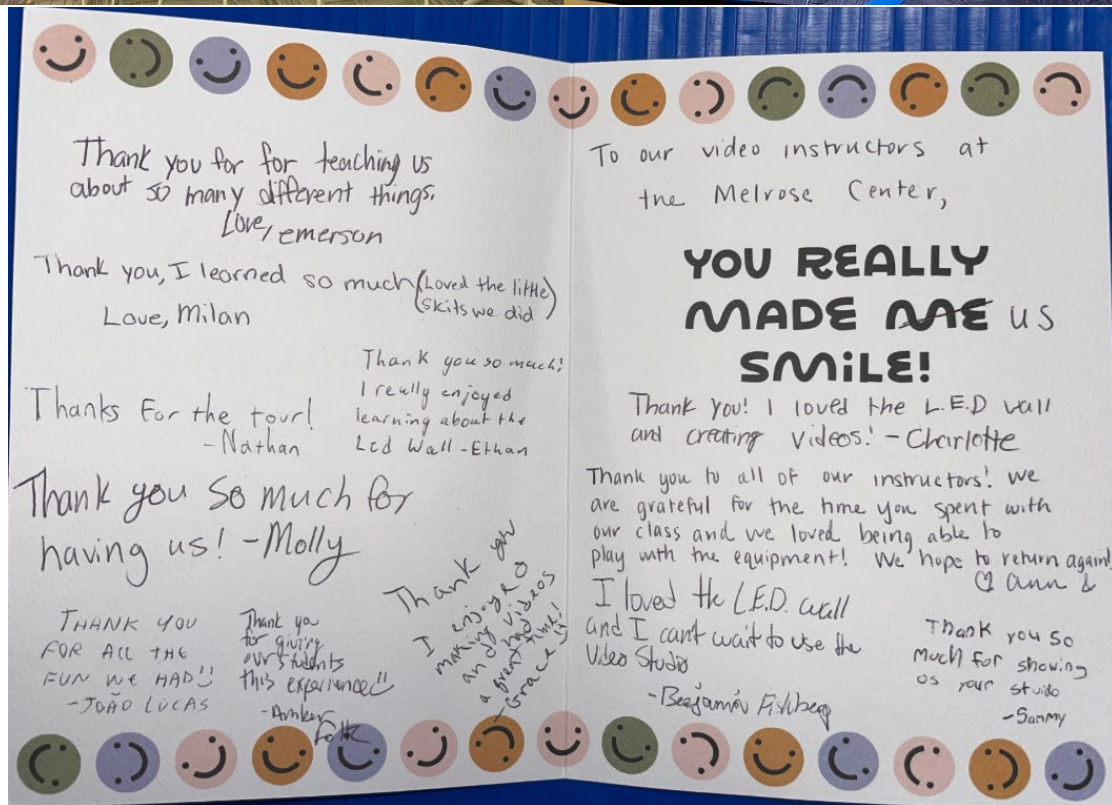 Thank you for for teaching us
about so many different things.
Love, emerson
Thank you, I learned so much (Loved the little
skits we did)
Love, Milan
Thank you so much!
I really enjoyed
learning about the
Led Wall - Ethan
Thanks For the tour!
- Nathan
Thank you so much for
having us! - Molly
THANK YOU
FOR ALL THE
FUN WE HAD!
- JOÃO LUCAS
Thank you
for giving
our students
this experience!
Thank you
I enjoyed
making videos
and had
a great time!
- Grace
To our video instructors at
the Melrose Center,
YOU REALLY
MADE ME us
SMiLE!
Thank you! I loved the L.E.D wall
and creating videos! - Charlotte
Thank you to all of our instructors! We
are grateful for the time you spent with
our class and we loved being able to
play with the equipment! We hope to return again!
ann
I loved the L.E.D. wall
and I can't wait to use the
Video Studio
- Benjamin Fishberg
Thank you so
much for showing
us your stuido
- Sammy